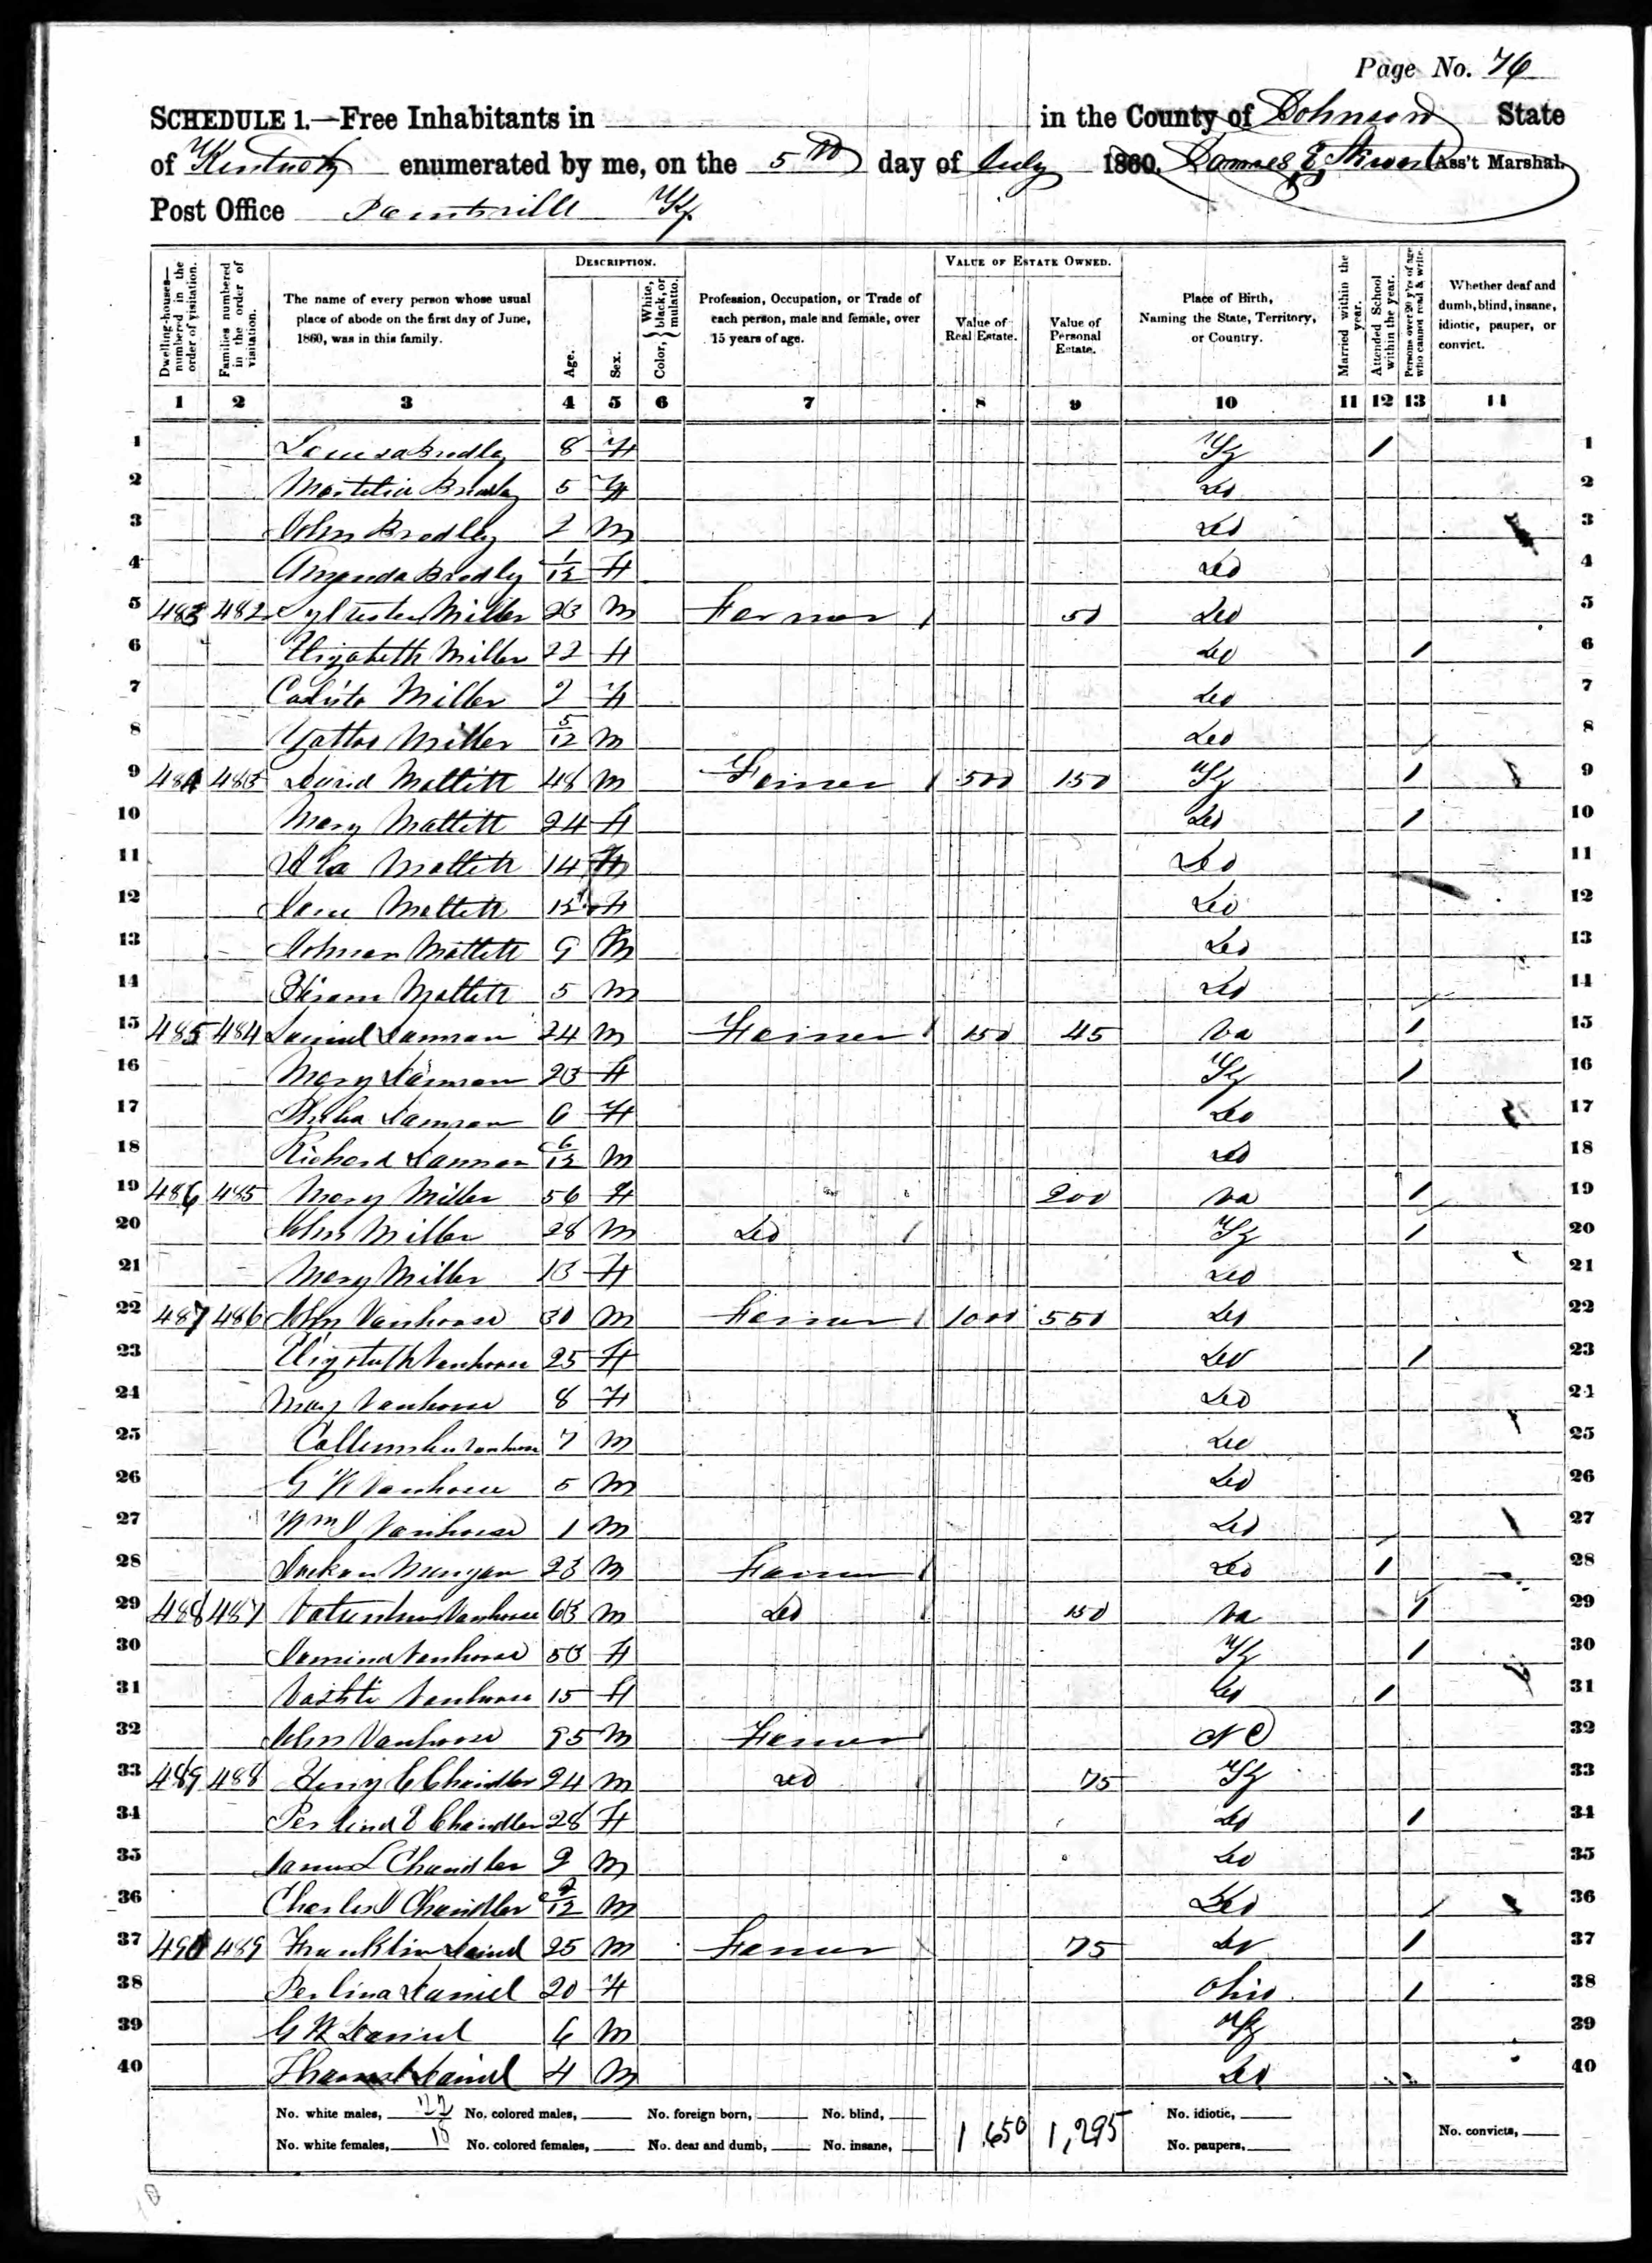 Page No. 76
SCHEDULE 1.—Free Inhabitants in in the County of Johnson State
of Kentucky enumerated by me, on the 5th day of July 1860. Ass't Marshal.
Post Office Paintsville Ky
Dwelling-houses—numbered in the order of visitation.
Families numbered in the order of visitation.
The name of every person whose usual place of abode on the first day of June, 1860, was in this family.
DESCRIPTION.
Age.
Sex.
Color, } White, black, or mulatto.
Profession, Occupation, or Trade of each person, male and female, over 15 years of age.
VALUE OF ESTATE OWNED.
Value of Real Estate.
Value of Personal Estate.
Place of Birth, Naming the State, Territory, or Country.
Married within the year.
Attended School within the year.
Persons over 20 y'rs of age who cannot read & write.
Whether deaf and dumb, blind, insane, idiotic, pauper, or convict.
1 2 3 4 5 6 7 8 9 10 11 12 13 14
1 Louisa Bradley 8 F Ky / 1
2 Bradley 5 F Do 2
3 John Bradley 2 M Do 3
4 Amanda Bradley 1/12 F Do 4
5 483 482 Sylvester Miller 23 M Farmer / 50 Do 5
6 Elizabeth Miller 22 F Do / 6
7 Miller 2 F Do 7
8 Miller 5/12 M Do 8
9 484 483 David 48 M Farmer / 500 150 Ky / 9
10 Mary 24 F Do / 10
11 14 Do 11
12 Jane F Do 12
13 9 M Do 13
14 Hiram 5 M Do 14
15 485 484 24 M Farmer / 150 45 Va / 15
16 Mary 23 F Ky / 16
17 6 F Do 17
18 Richard 6/12 M Do 18
19 486 485 Mary Miller 56 F 200 Va / 19
20 John Miller 28 M Do / Ky / 20
21 Mary Miller 13 F Do 21
22 487 486 John Vanhoose 30 M Farmer / 1000 550 Do 22
23 Elizabeth Vanhoose 25 F Do / 23
24 Mary Vanhoose 8 F Do 24
25 Vanhoose 7 M Do 25
26 G W Vanhoose 5 M Do 26
27 Wm J Vanhoose 1 M Do 27
28 23 M Farmer / Do / 28
29 488 487 Vanhoose 63 M Do 150 Va / 29
30 Vanhoose 53 F Ky / 30
31 Vashti Vanhoose 15 F Do / 31
32 John Vanhoose 95 M Farmer / N C 32
33 489 488 Henry C Chandler 24 M Do / 75 Ky 33
34 Chandler 28 F Do / 34
35 James L Chandler 2 M Do 35
36 Charles J Chandler M Do 36
37 490 489 Franklin Daniel 25 M Farmer 75 Do / 37
38 Perlina Daniel 20 F Ohio / 38
39 G W Daniel 6 M Ky 39
40 Daniel 4 M Do 40
No. white males, 22 No. colored males, No. foreign born, No. blind, 1,650 1,295 No. idiotic,
No. white females, 18 No. colored females, No. deaf and dumb, No. insane, No. paupers, No. convicts,